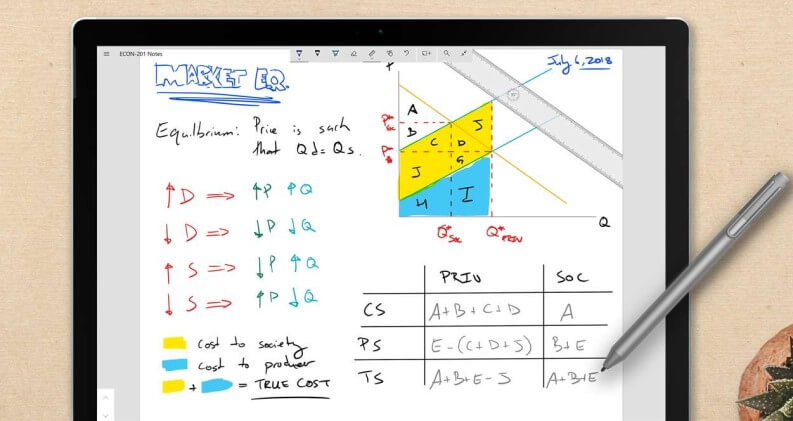 ECON-201 Notes
MARKET EQ.
July 6, 2018
Equilbrium: Price is such
that Qd = Qs.
↑D ⇒ ↑P ↑Q
↓D ⇒ ↓P ↓Q
↑S ⇒ ↓P ↑Q
↓S ⇒ ↑P ↓Q
cost to society
cost to producer
+ = TRUE COST
P
A
B
C D J
G
J
H I
P*
P*
Q
Q*soc Q*PRIV
PRIV SOC
CS A+B+C+D A
PS E-(C+D+J) B+E
TS A+B+E-J A+B+E